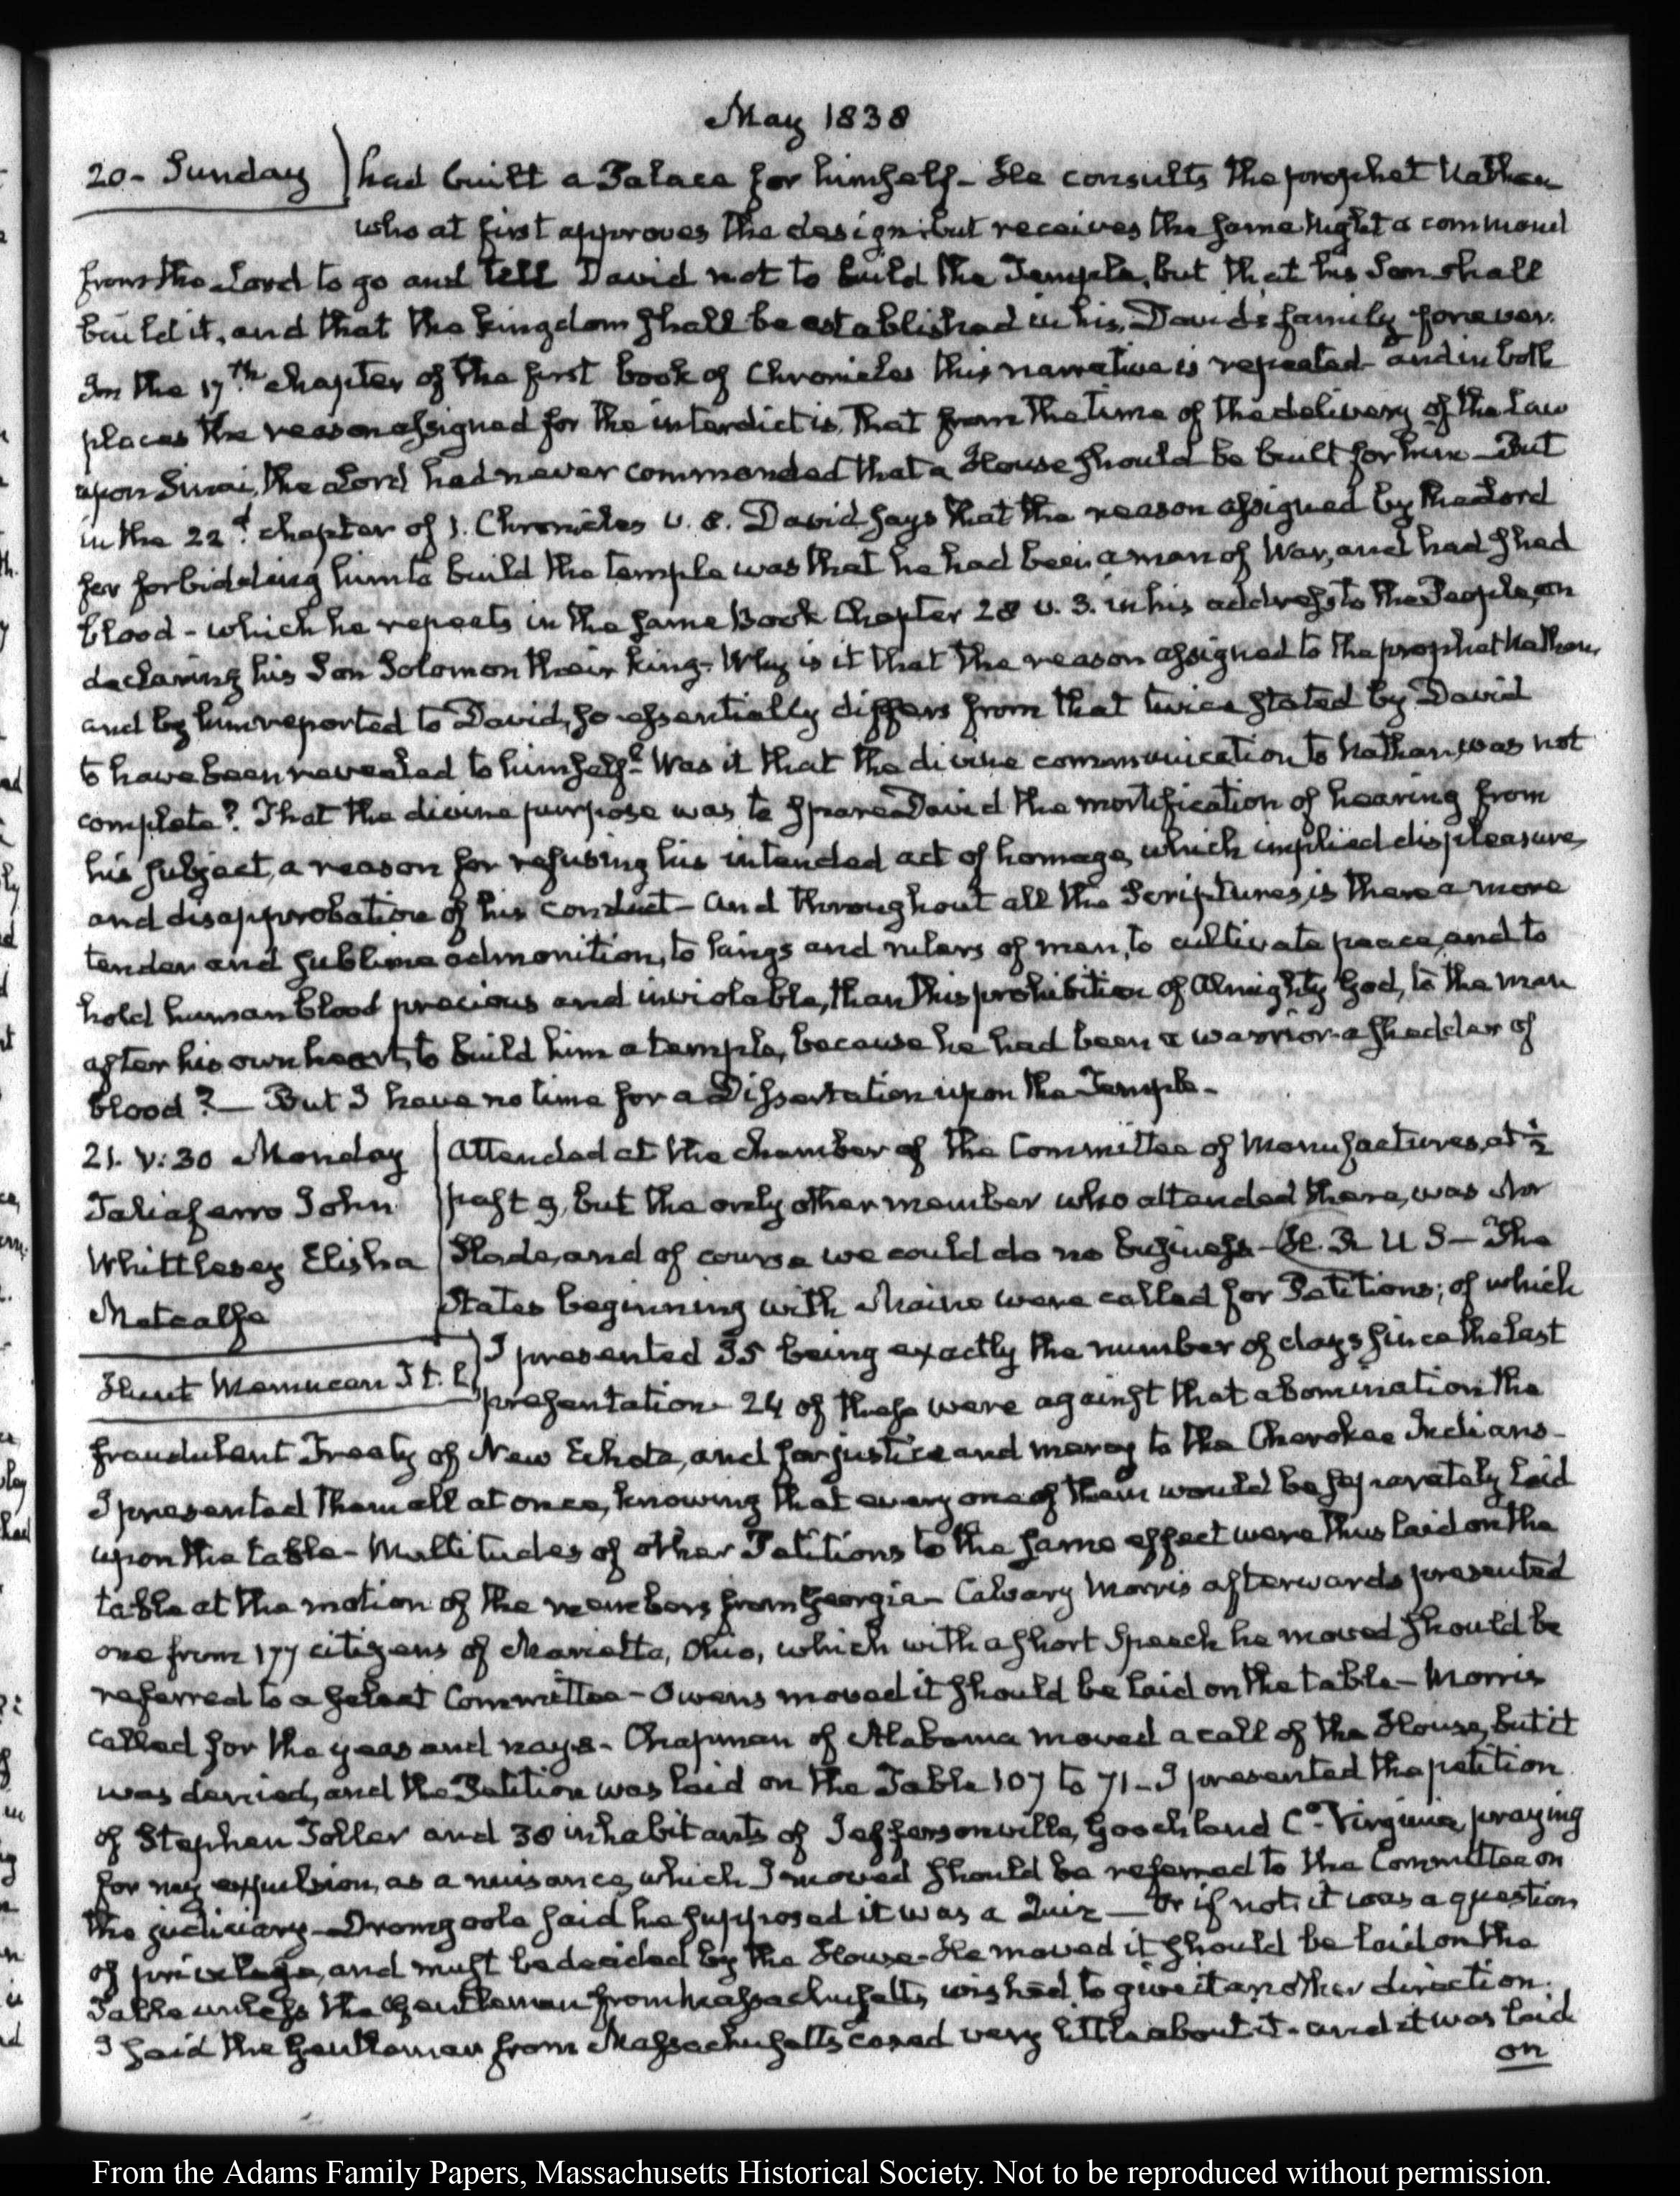 May 1838
20 - Sunday
had built a Palace for himself - He consults the prophet Nathan
who at first approves the design: but receives the same Night a command
from the Lord to go and tell David not to build the Temple, but that his Son shall
build it, and that the kingdom shall be established in his, David's family forever.
In the 17th chapter of the first book of Chronicles this narrative is repeated - and in both
places the reason assigned for the interdict is, that from the time of the delivery of the Law
upon Sinai, the Lord had never commanded that a House should be built for him - But
in the 22d chapter of 1. Chronicles v. 8. David says that the reason assigned by the Lord
for forbidding him to build the temple was that he had been a man of War, and had shed
blood - which he repeats in the same Book Chapter 28 v. 3. in his address to the People, on
declaring his Son Solomon their king - Why is it that the reason assigned to the prophet Nathan,
and by him reported to David, so essentially differs from that twice stated by David
to have been revealed to himself? Was it that the divine communication to Nathan, was not
complete? That the divine purpose was to spare David the mortification of hearing from
his subject, a reason for refusing his intended act of homage, which implied displeasure,
and disapprobation of his conduct - And throughout all the Scriptures, is there a more
tender and sublime admonition, to kings and rulers of men, to cultivate peace, and to
hold human blood precious and inviolable, than this prohibition of Almighty God, to the man
after his own heart, to build him a temple, because he had been a warrior - a shedder of
blood? — But I have no time for a Dissertation upon the Temple -
21. V:30 Monday
Taliaferro John
Whittlesey Elisha
Metcalfe
Hunt Memucan
Attended at the chamber of the Committee of Manufactures, at ½
past 9, but the only other member who attended there, was Mr
Slade, and of course we could do no business - H. R. U S — The
States beginning with Maine were called for Petitions; of which
I presented 35 being exactly the number of days since the last
presentation - 24 of these were against that abomination the
fraudulent Treaty of New Echota, and for justice and mercy to the Cherokee Indians -
I presented them all at once, knowing that every one of them would be separately laid
upon the table - Multitudes of other Petitions to the same effect were thus laid on the
table at the motion of the members from Georgia - Calvary Morris afterwards presented
one from 177 citizens of Marietta, Ohio, which with a short Speech he moved should be
referred to a select Committee - Owens moved it should be laid on the table - Morris
called for the yeas and nays - Chapman of Alabama moved a call of the House, but it
was denied, and the Petition was laid on the Table 107 to 71 - I presented the petition
of Stephen Toller and 38 inhabitants of Jeffersonville, Goochland Co. Virginia, praying
for my expulsion, as a nuisance, which I moved should be referred to the Committee on
the judiciary - Dromgoole said he supposed it was a Quiz — or if not it was a question
of privilege, and must be decided by the House - He moved it should be laid on the
Table unless the Gentleman from Massachusetts, wished to give it another direction.
I said the Gentleman from Massachusetts cared very little about it - and it was laid
on
From the Adams Family Papers, Massachusetts Historical Society. Not to be reproduced without permission.